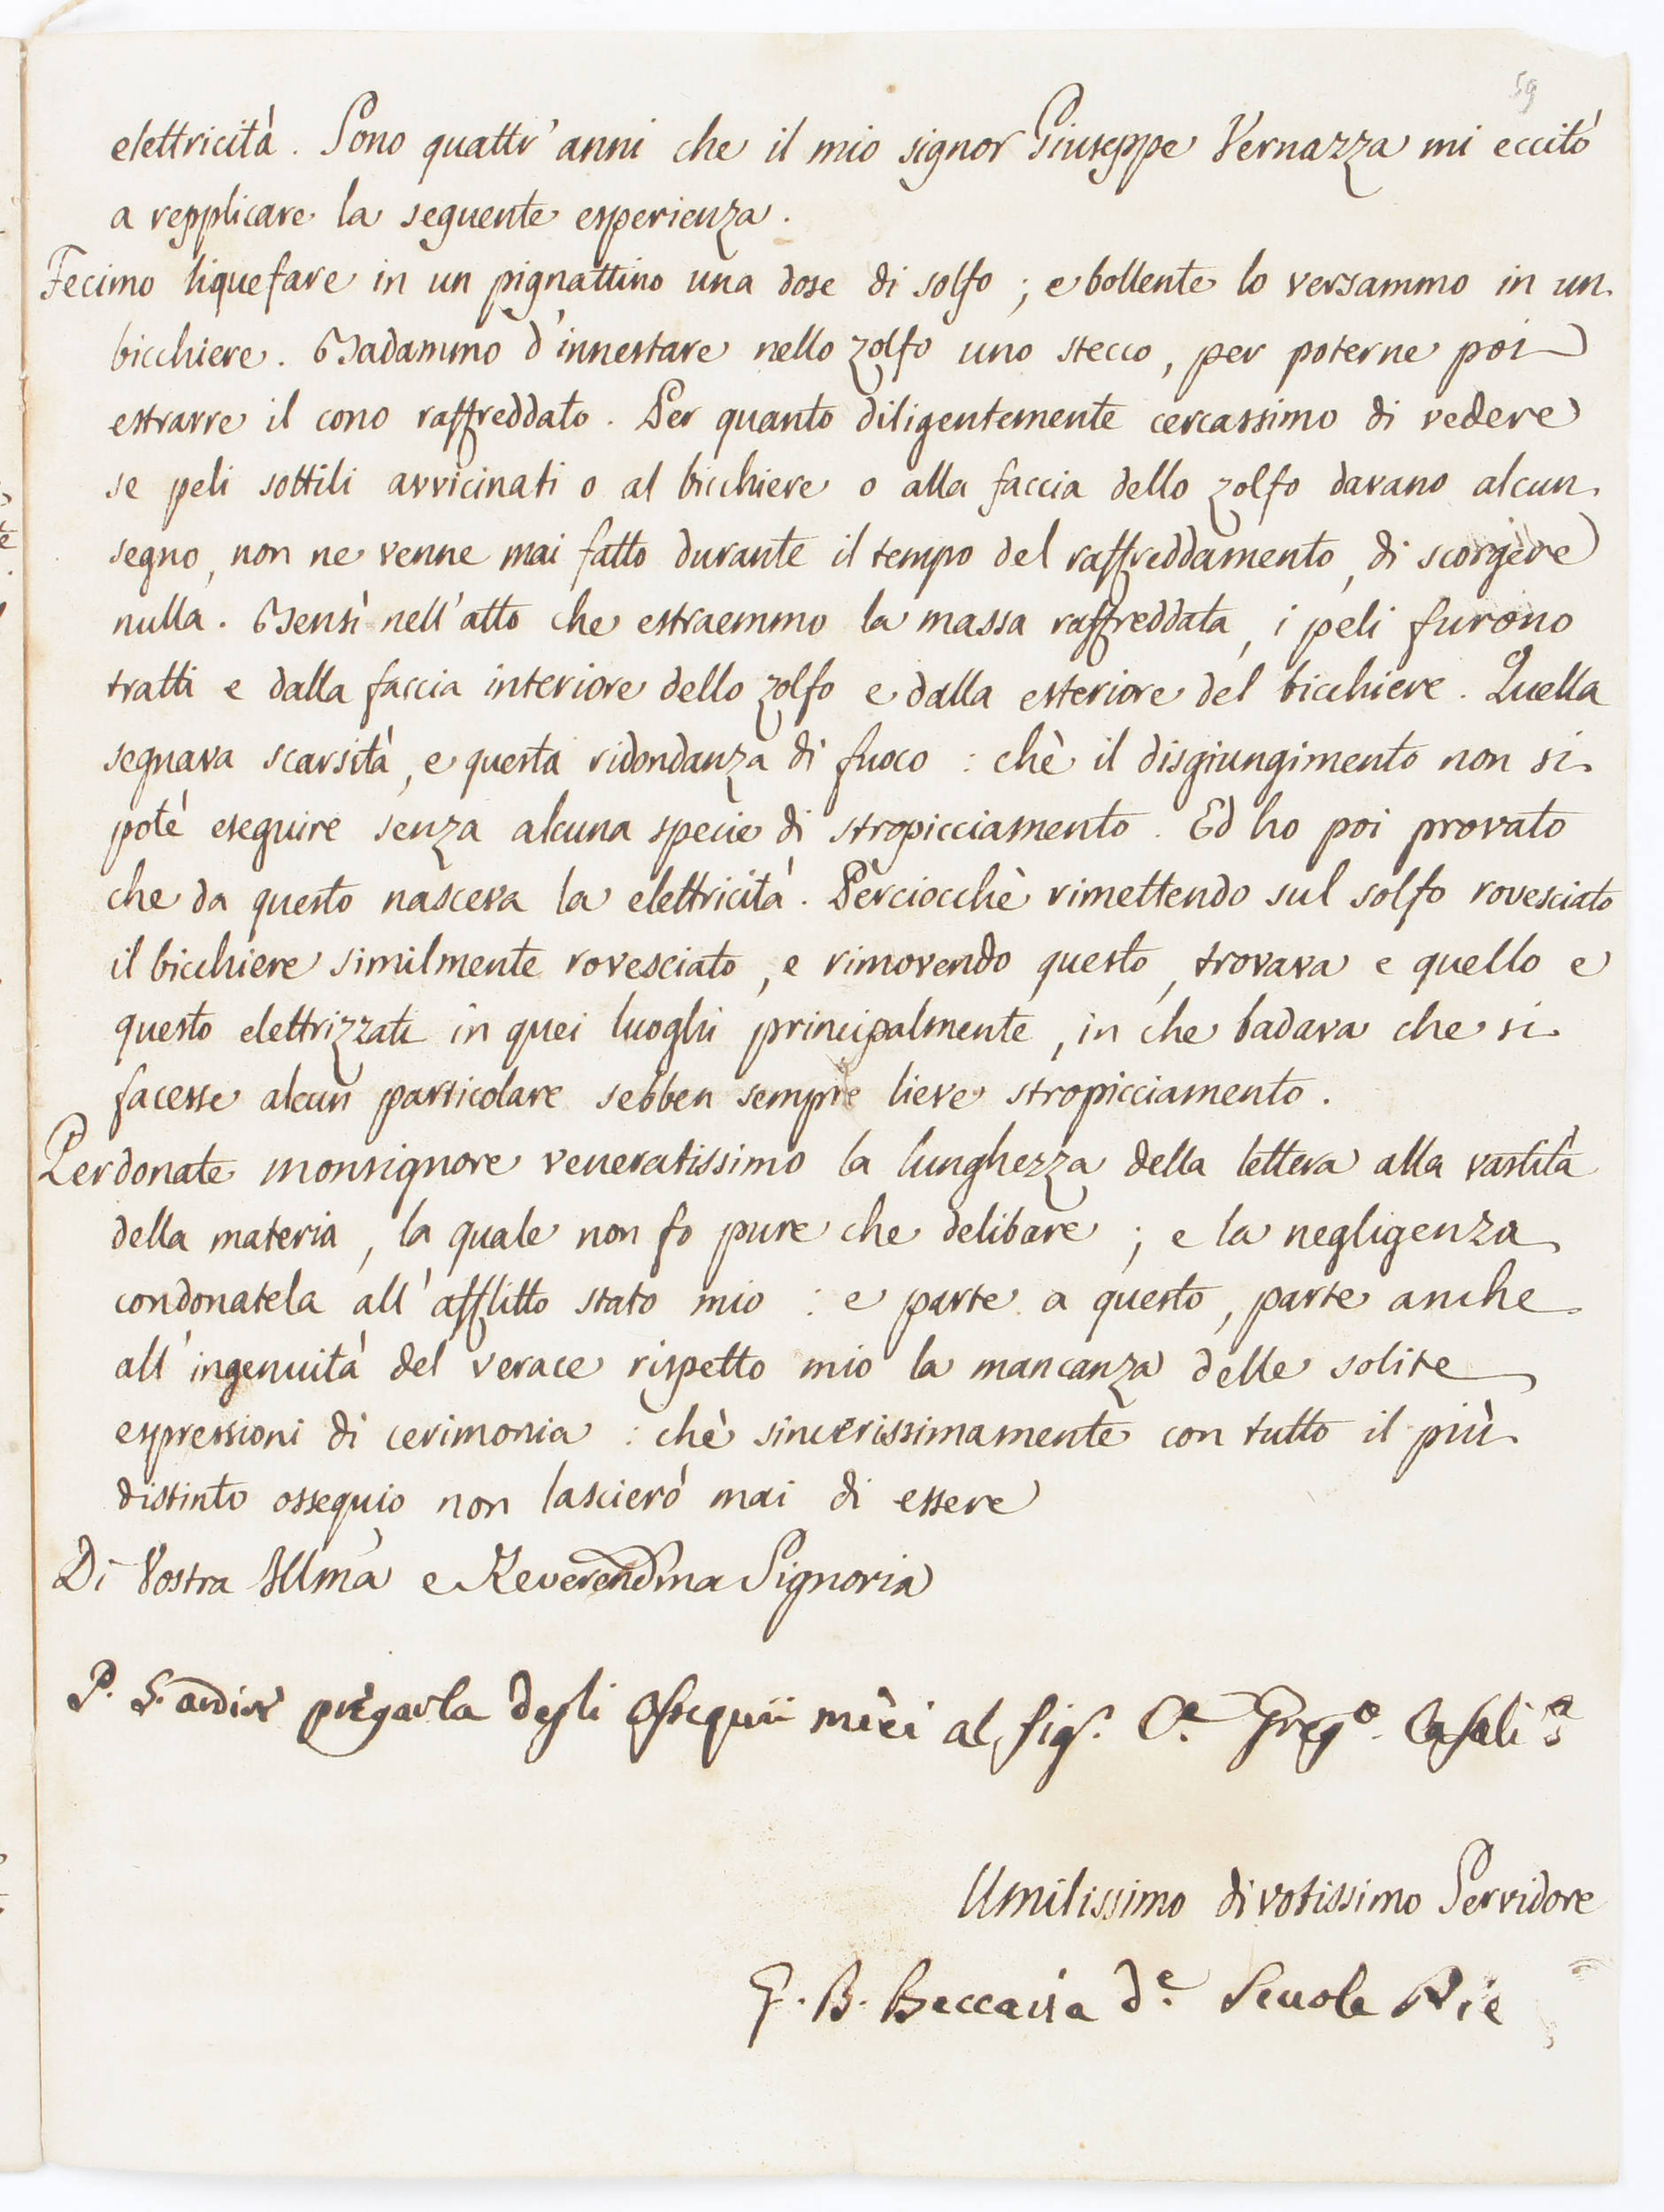 59
elettricità. Sono quattr'anni che il mio signor Giuseppe Vernazza mi eccitò
a repplicare la seguente esperienza.
Fecimo liquefare in un pignattino una dose di solfo; e bollente lo versammo in un
bicchiere. Badammo d'innestare nello zolfo uno stecco, per poterne poi
estrarre il cono raffreddato. Per quanto diligentemente cercassimo di vedere
se peli sottili avvicinati o al bicchiere o alla faccia dello zolfo davano alcun
segno, non ne venne mai fatto durante il tempo del raffreddamento, di scorgere
nulla. Bensì nell'atto che estraemmo la massa raffreddata, i peli furono
tratti e dalla faccia interiore dello zolfo e dalla esteriore del bicchiere. Quella
segnava scarsità, e questa ridondanza di fuoco: chè il disgiungimento non si
potè eseguire senza alcuna specie di stropicciamento. Ed ho poi provato
che da questo nasceva la elettricità. Perciocchè rimettendo sul solfo rovesciato
il bicchiere similmente rovesciato, e rimovendo questo, trovava e quello e
questo elettrizzati in quei luoghi principalmente, in che badava che si
facesse alcun particolare sebben sempre lieve stropicciamento.
Perdonate monsignore veneratissimo la lunghezza della lettera alla vastità
della materia, la quale non fo pure che delibare; e la negligenza
condonatela all'afflitto stato mio: e parte a questo, parte anche
all'ingenuità del verace rispetto mio la mancanza delle solite
espressioni di cerimonia: chè sincerissimamente con tutto il più
distinto ossequio non lascierò mai di essere
Di Vostra Illma e Reverendma Signoria
P. S. ardisc pregarla degli ossequii miei al Sigr. Ce. Grego. Casali
Umilissimo divotissimo Servidore
G. B. Beccaria de. Scuole Pie